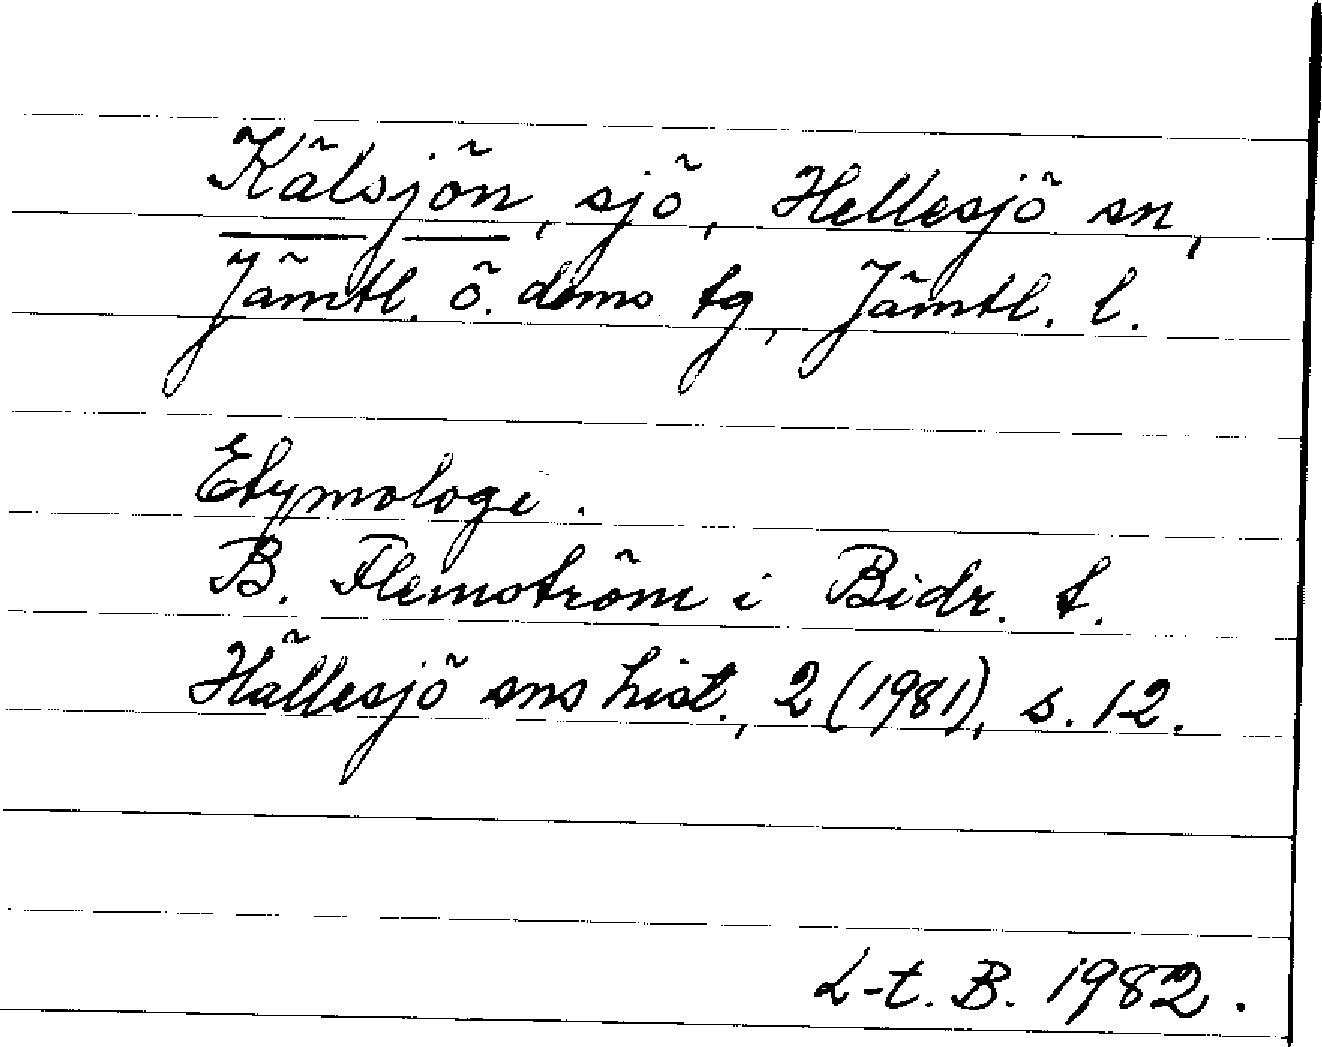 Kälsjön, sjö, Hellesjö sn,
Jämtl. ö. doms tg, Jämtl. l.
Etymologi.
B. Flemström i Bidr. t.
Hällesjö sns hist., 2 (1981), s. 12.
L-t. B. 1982.